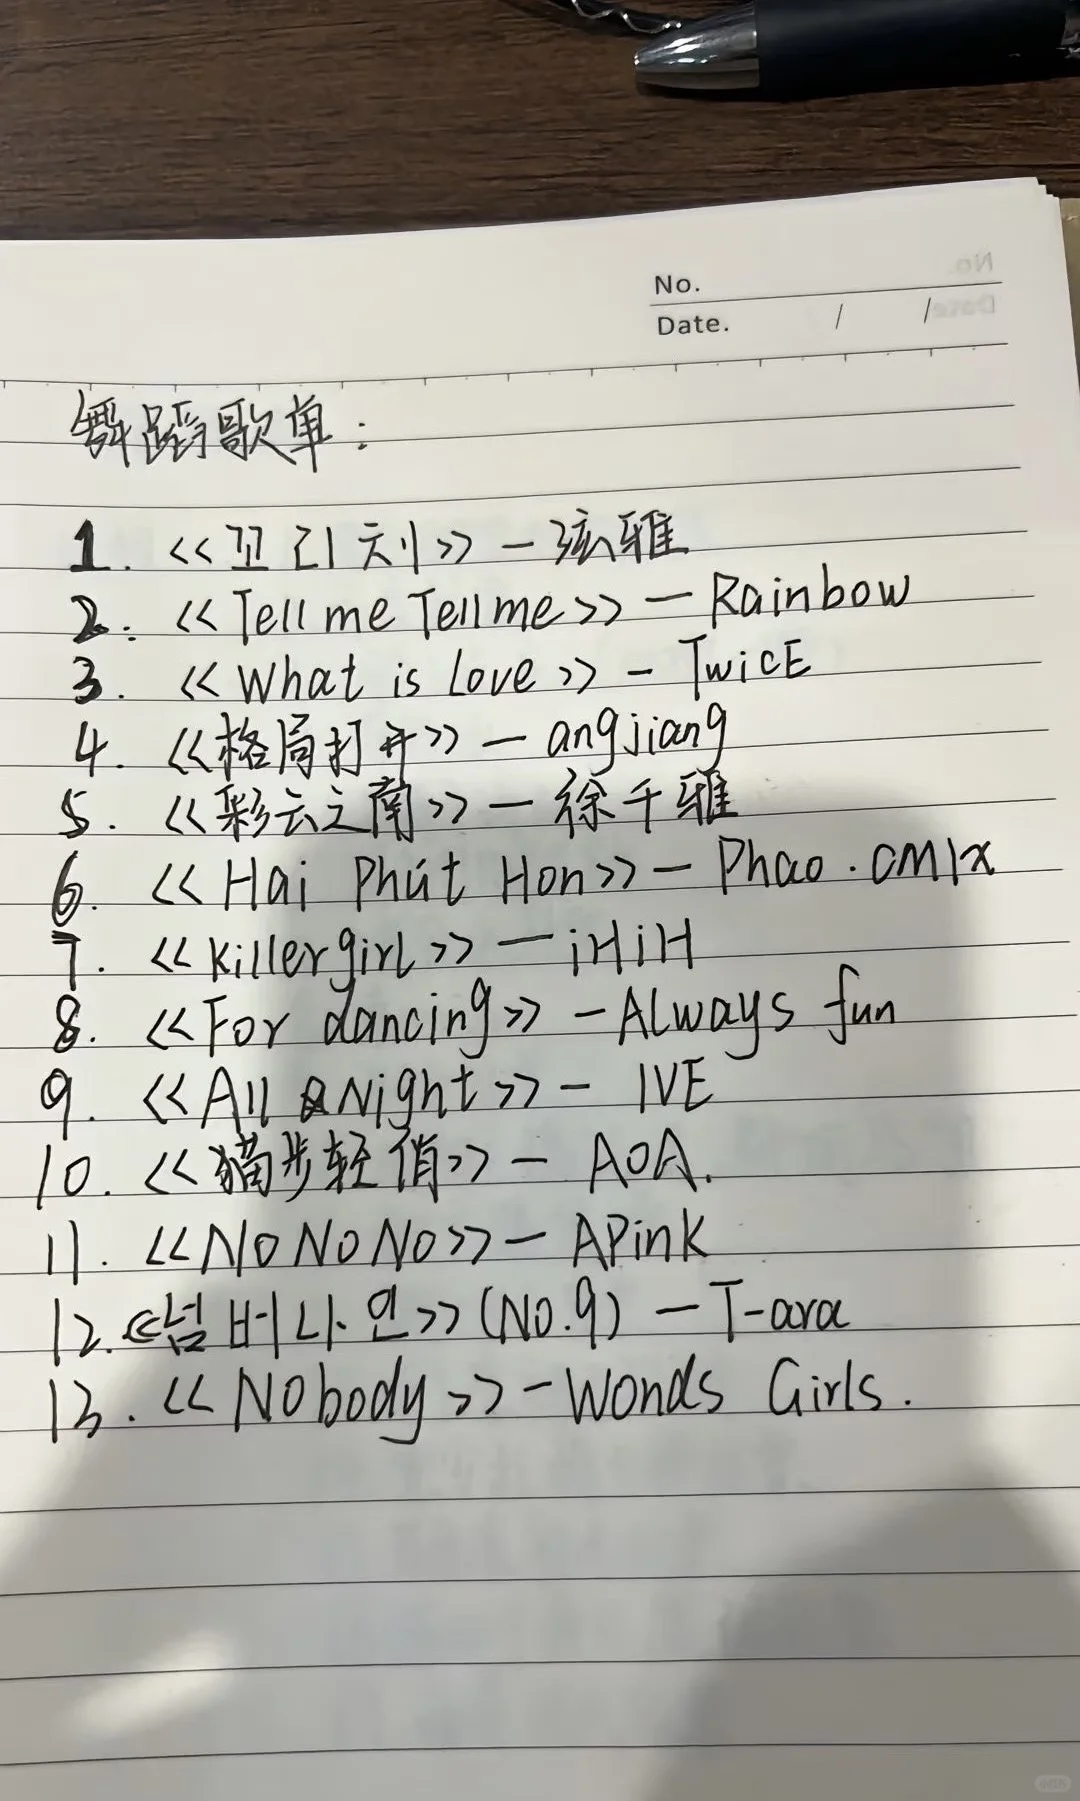 No.
Date. / /
舞蹈歌单：
1. <<꼬리치>> — 弦雅
2. <<Tell me Tell me>> — Rainbow
3. <<What is Love>> - TwicE
4. <<格局打开>> — angjiang
5. <<彩云之南>> — 徐千雅
6. <<Hai Phút Hon>> — Phao.CMIX
7. <<Killergirl>> — iHiH
8. <<For dancing>> - Always fun
9. <<All Night>> - IVE
10. <<猫步轻俏>> - AOA.
11. <<No No No>> - APink
12. <<넘버나인>> (NO.9) — T-ara
13. <<Nobody>> - Wonds Girls.